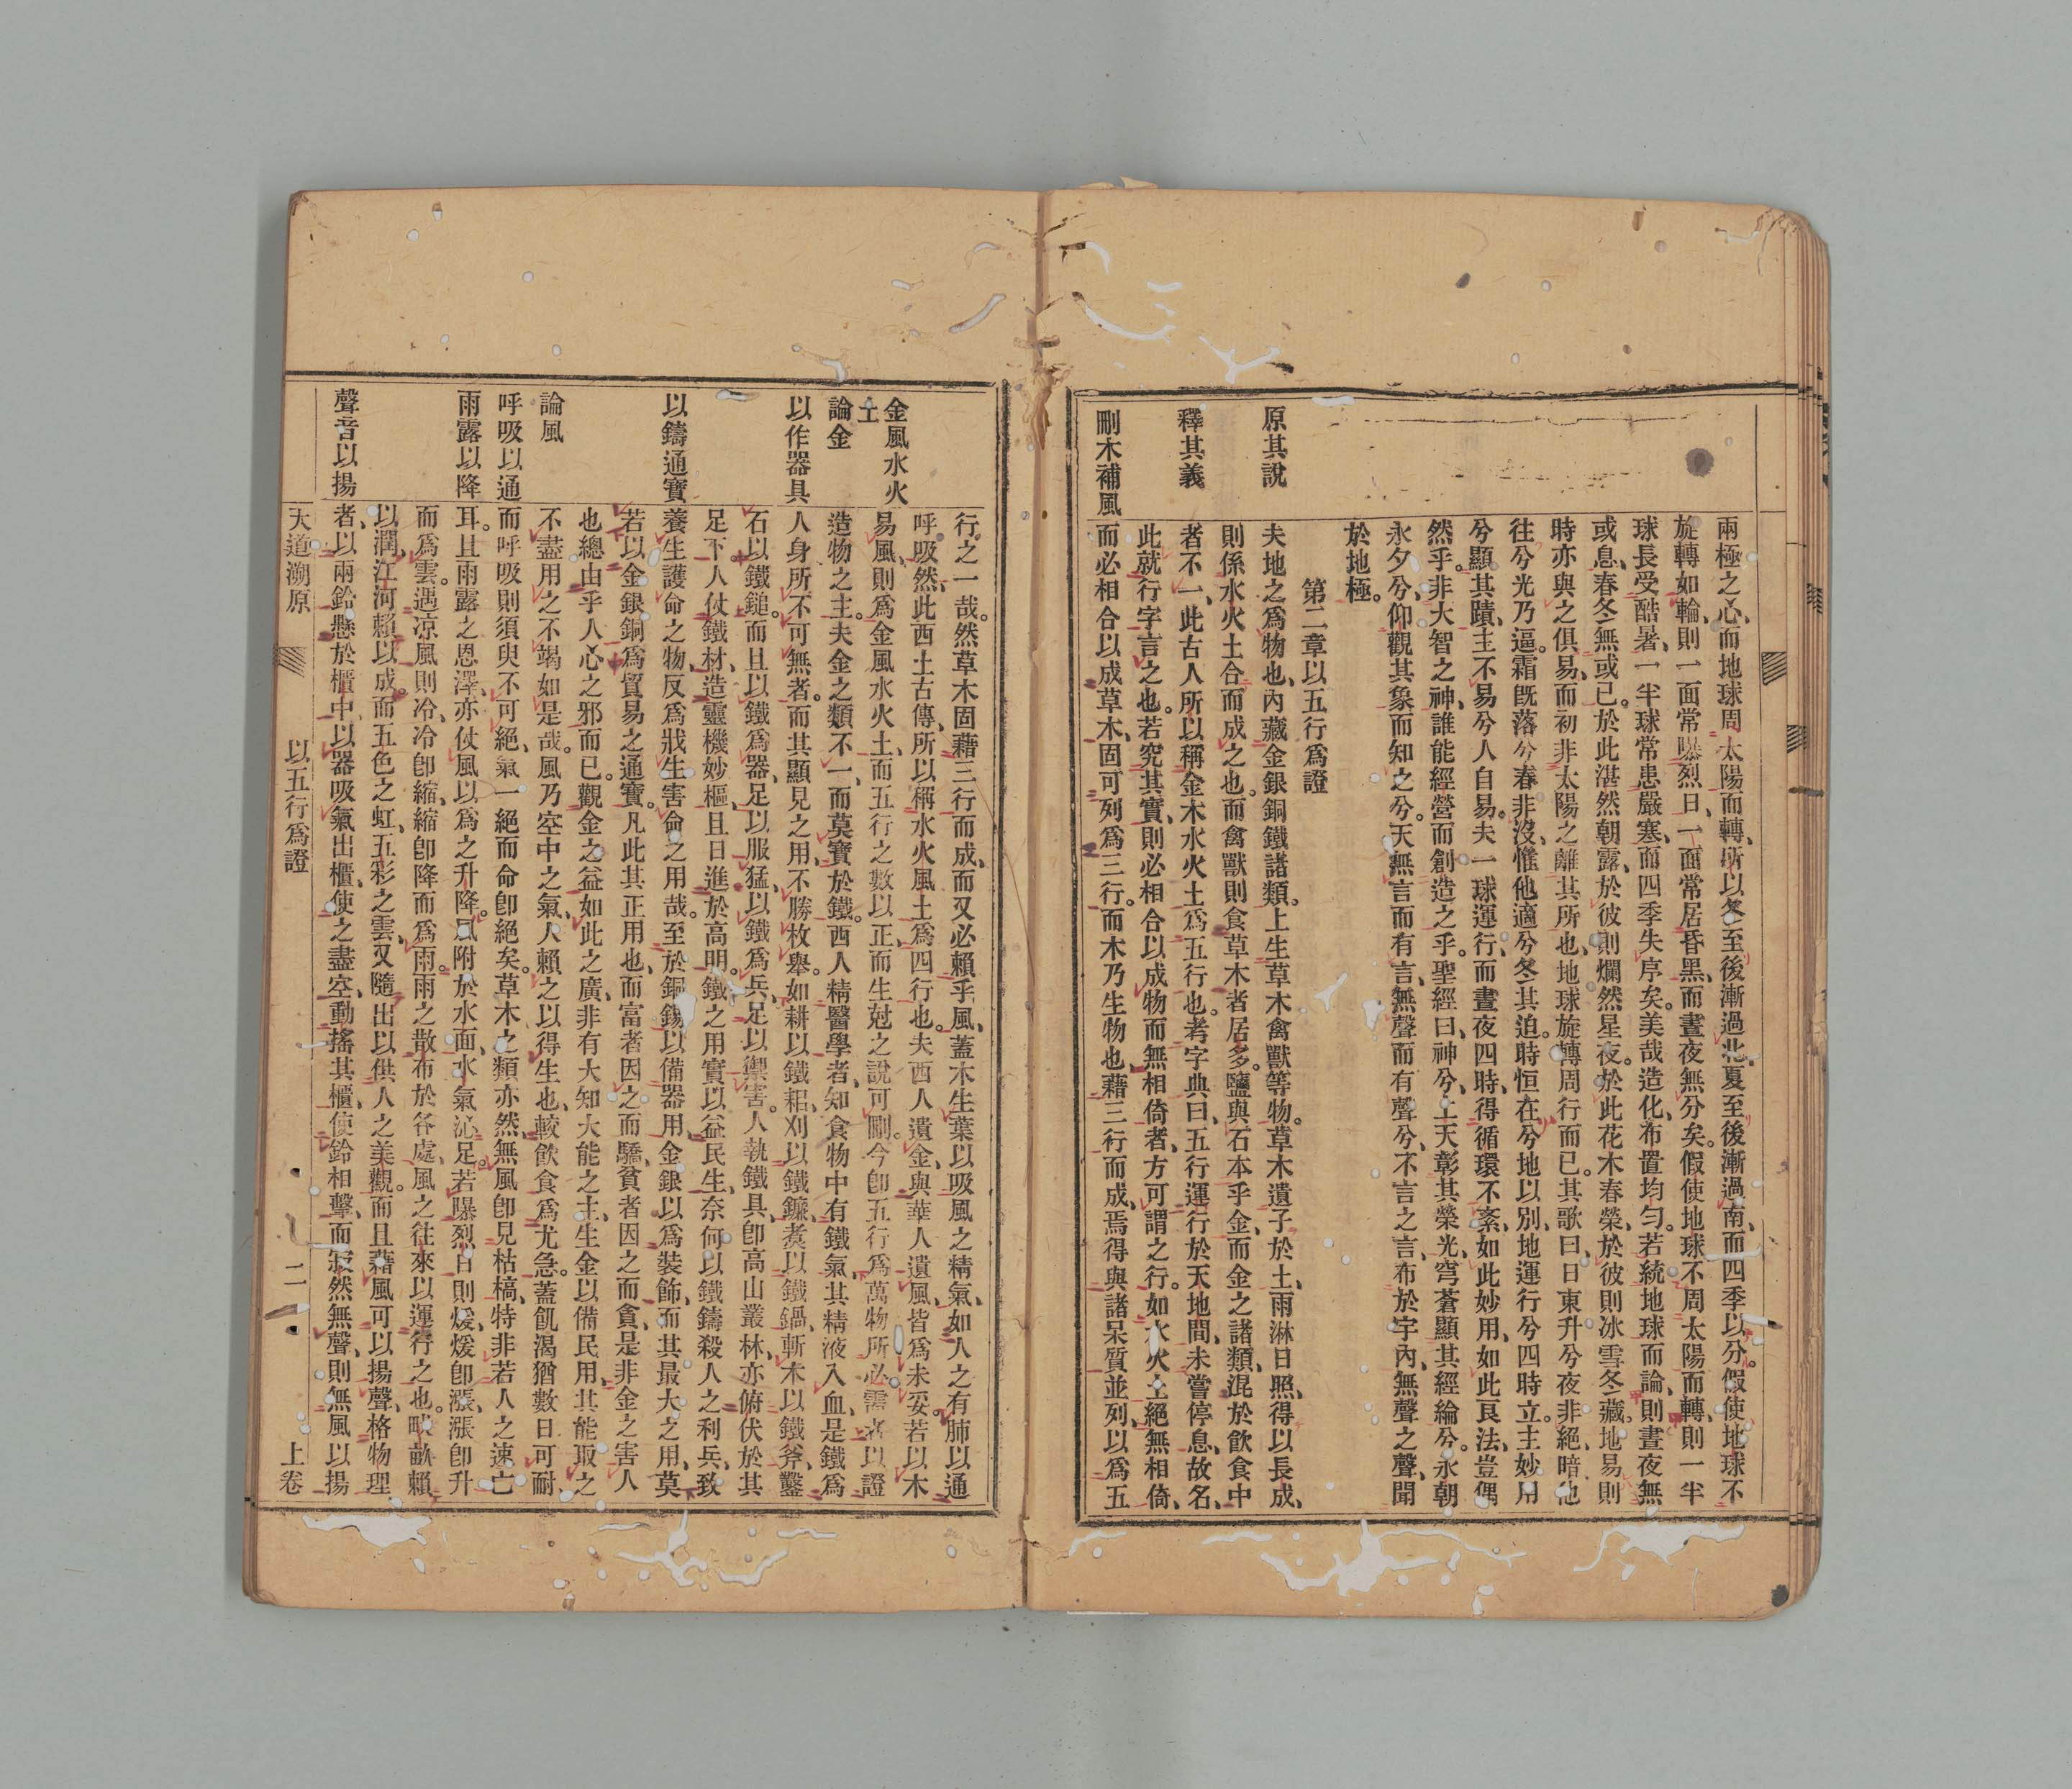 兩極之心、而地球周太陽而轉、所以冬至後漸過北、夏至後漸過南、而四季以分。假使地球不
旋轉如輪、則一面常曝烈日、一面常居昏黑、而晝夜無分矣。假使地球不周太陽而轉、則一半
球長受酷暑、一半球常患嚴寒、而四季失序矣。美哉造化、布置均勻。若統地球而論、則晝夜無
或息、春冬無或已。於此湛然朝露、於彼則爛然星夜。於此花木春榮、於彼則冰雪冬藏。地易則
時亦與之俱易、而初非太陽之離其所也、地球旋轉周行而已。其歌曰、日東升兮夜非絕、暗他
往兮光乃逼。霜旣落兮春非沒、惟他適兮冬其迫。時恒在兮地以別、地運行兮四時立。主妙用
兮顯其蹟、主不易兮人自易。夫一球運行、而晝夜四時、得循環不紊、如此妙用、如此良法、豈偶
然乎。非大智之神、誰能經營而創造之乎。聖經曰、神兮、上天彰其榮光、穹蒼顯其經綸兮。永朝
永夕兮、仰觀其象而知之兮。天無言而有言、無聲而有聲兮、不言之言、布於宇內、無聲之聲、聞
於地極。
第二章以五行爲證
原其說
夫地之爲物也、內藏金銀銅鐵諸類。上生草木禽獸等物。草木遺子於土、雨淋日照、得以長成、
則係水火土合而成之也。而禽獸則食草木者居多。鹽與石本乎金、而金之諸類、混於飲食中
釋其義
者不一、此古人所以稱金木水火土爲五行也。考字典曰、五行運行於天地間、未嘗停息、故名、
此就行字言之也。若究其實、則必相合以成物而無相倚者、方可謂之行。如水火土絕無相倚、
刪木補風
而必相合以成草木、固可列爲三行。而木乃生物也、藉三行而成、焉得與諸呆質並列、以爲五
行之一哉。然草木固藉三行而成、而又必賴乎風、蓋木生葉以吸風之精氣、如人之有肺以通
呼吸然、此西土古傳、所以稱水火風土爲四行也。夫西人遺金、與華人遺風、皆爲未妥。若以木
金風水火
土
易風、則爲金風水火土、而五行之數以正、而生尅之說可刪。今卽五行爲萬物所必需者以證
論金
造物之主。夫金之類不一、而莫寶於鐵。西人精醫學者、知食物中有鐵氣、其精液入血、是鐵爲
以作器具
人身所不可無者。而其顯見之用、不勝枚舉。如耕以鐵耜、刈以鐵鐮、煑以鐵鍋、斬木以鐵斧、鑿
石以鐵鎚。而且以鐵爲器、足以服猛、以鐵爲兵、足以禦害。人執鐵具、卽高山叢林、亦俯伏於其
足下。人仗鐵材、造靈機妙樞、且日進於高明。鐵之用實以益民生、奈何以鐵鑄殺人之利兵、致
以鑄通寶
養生護命之物、反爲戕生害命之用哉。至於銅錫以備器用、金銀以爲裝飾、而其最大之用、莫
若以金銀銅爲貿易之通寶。凡此其正用也、而富者因之而驕、貧者因之而貪、是非金之害人
也、總由乎人心之邪而已。觀金之益如此之廣、非有大知大能之主、生金以備民用、其能取之
論風
不盡用之不竭如是哉。風乃空中之氣、人賴之以得生也、較飲食爲尤急。蓋飢渴猶數日可耐、
呼吸以通
而呼吸則須臾不可絕、氣一絕而命卽絕矣。草木之類亦然、無風卽見枯槁、特非若人之速亡
雨露以降
耳。且雨露之恩澤、亦仗風以爲之升降。風附於水面、水氣沁足、若曝烈日則煖、煖卽漲、漲卽升
而爲雲。遇凉風則冷、冷卽縮、縮卽降而爲雨。雨之散布於各處、風之往來以運行之也。畎畝賴
以潤、江河賴以成。而五色之虹、五彩之雲、又隨出以供人之美觀。而且藉風可以揚聲、格物理
聲音以揚
者、以兩鈴懸於櫃中、以器吸氣出櫃、使之盡空、動搖其櫃、使鈴相擊、而寂然無聲、則無風以揚
天道溯原
以五行爲證
二
上卷